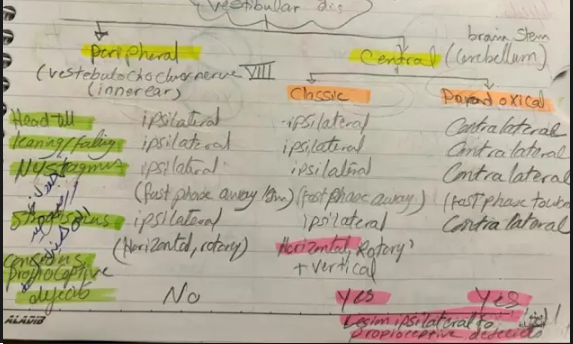 vestibular dis
peripheral
Central
brain stem
(cerebellum)
(vestebulocochlear nerve VIII
(inner ear)
Classic
Paradoxical
Head tilt ipsilateral ipsilateral Contralateral
leaning/falling ipsilateral ipsilateral Contralateral
Nystagmus ipsilateral ipsilateral Contralateral
(fast phase away (fast phase away) (fast phase
Strabismus ipsilateral ipsilateral Contralateral
(Horizontal, rotory) Horizontal, Rotory
+ vertical
conscious
proprioceptive
deficits No Yes Yes
Lesion ipsilateral to
proprioceptive deficits
ALADIB